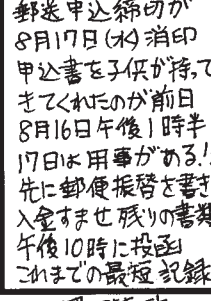 郵送申込締切が
8月17日(水)消印
申込書を子供が持って
きてくれたのが前日
8月16日午後1時半
17日は用事がある!!
先に郵便振替を書き
入金すませ残りの書類
午後10時に投函
これまでの最短記録